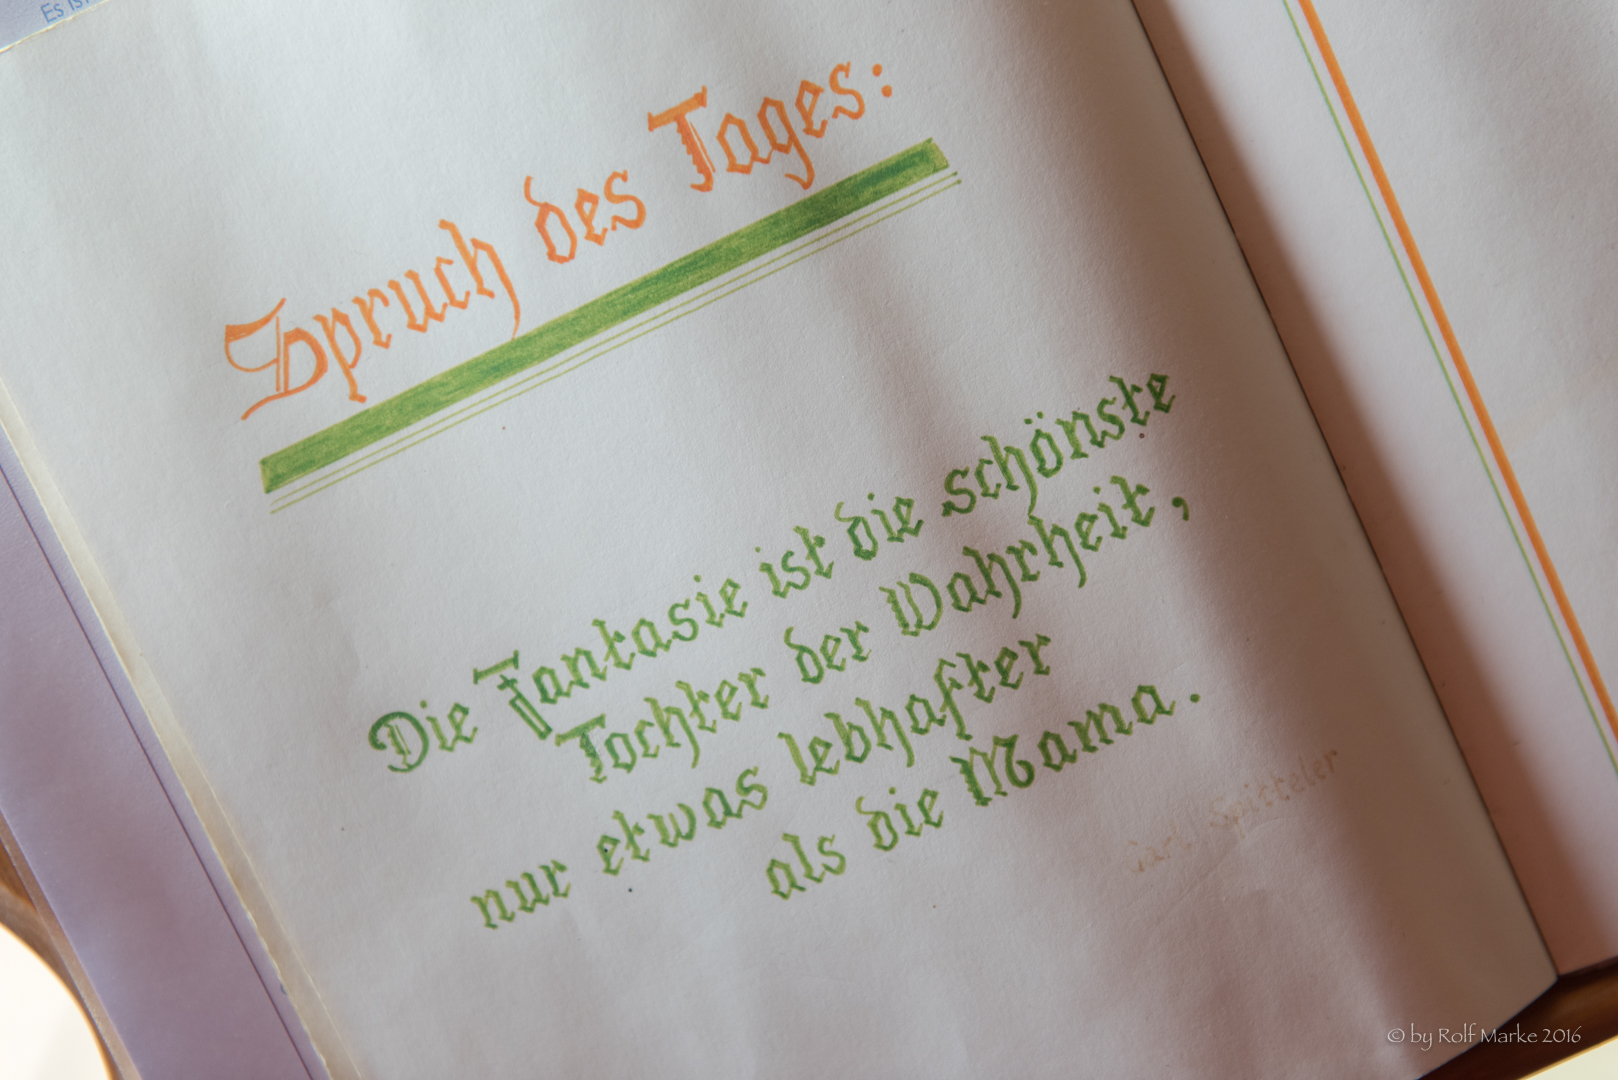 Es ist
Spruch des Tages:
Die Fantasie ist die schönste
Tochter der Wahrheit,
nur etwas lebhafter
als die Mama.
Carl Spitteler
© by Rolf Marke 2016